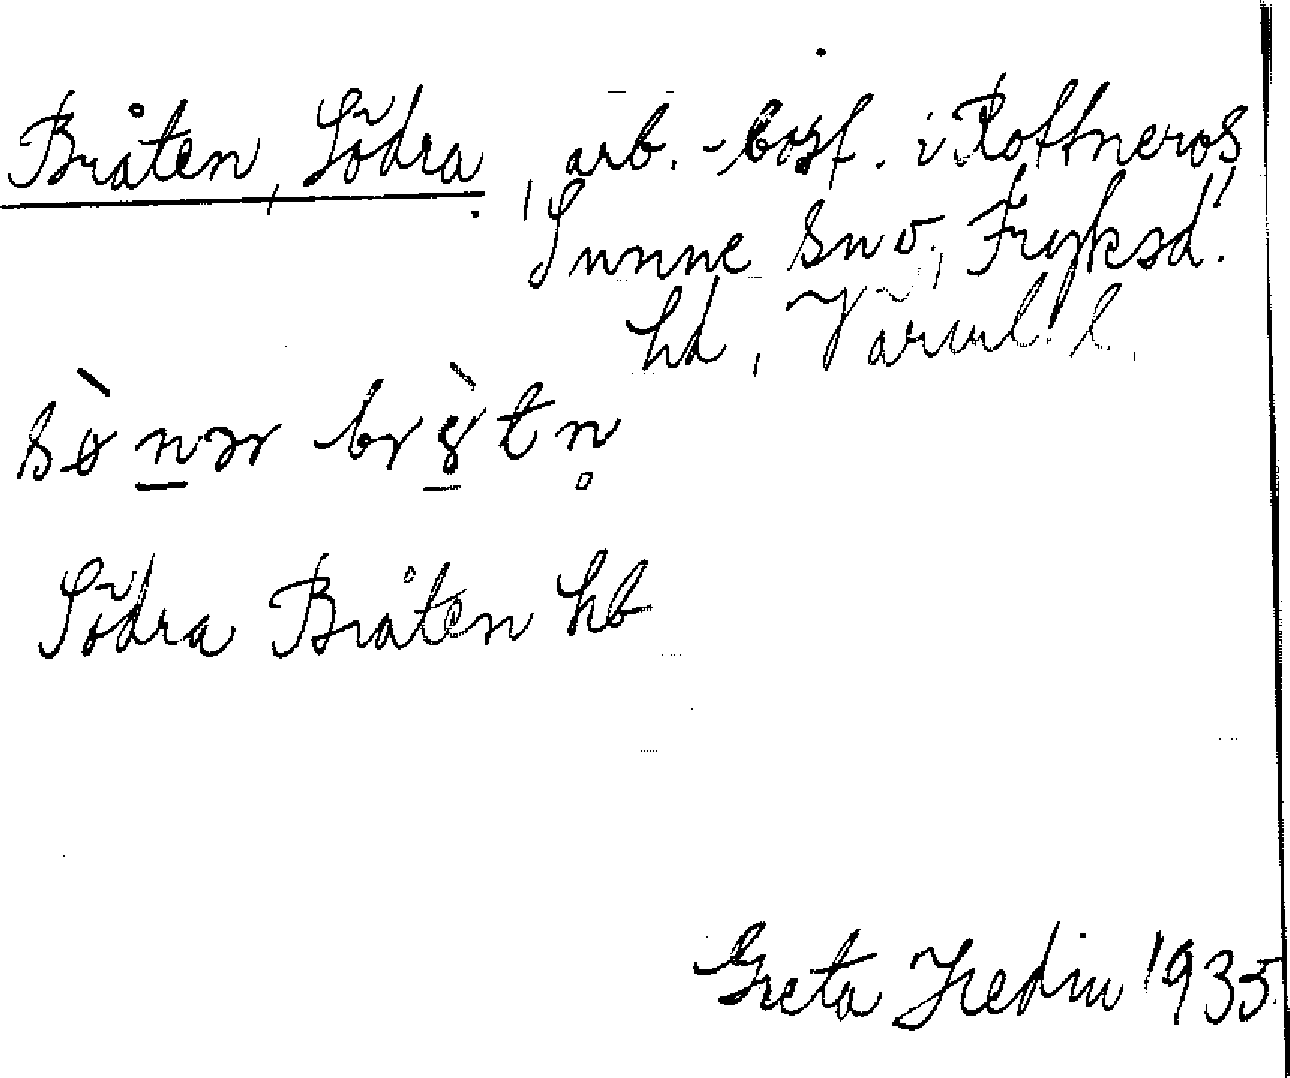 Bråten, Södra, arb.-bost. i Rottneros,
Sunne sn v., Fryksd.
hd, Värml. l.
Södra Bråten hb
Greta Hedin 1935